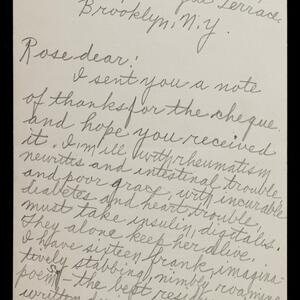 Terrace
Brooklyn, N.Y.
Rose dear!
I sent you a note
of thanks for the cheque,
and hope you received
it. I'm ill with rheumatism
neuritis and intestinal trouble
and poor grace, with incurable
diabetes and heart trouble!
must take insulin, digitalis.
They alone keep her alive.
I have sixteen frank, imagina-
tively stabbing, nimbly roaming
poems the best
written